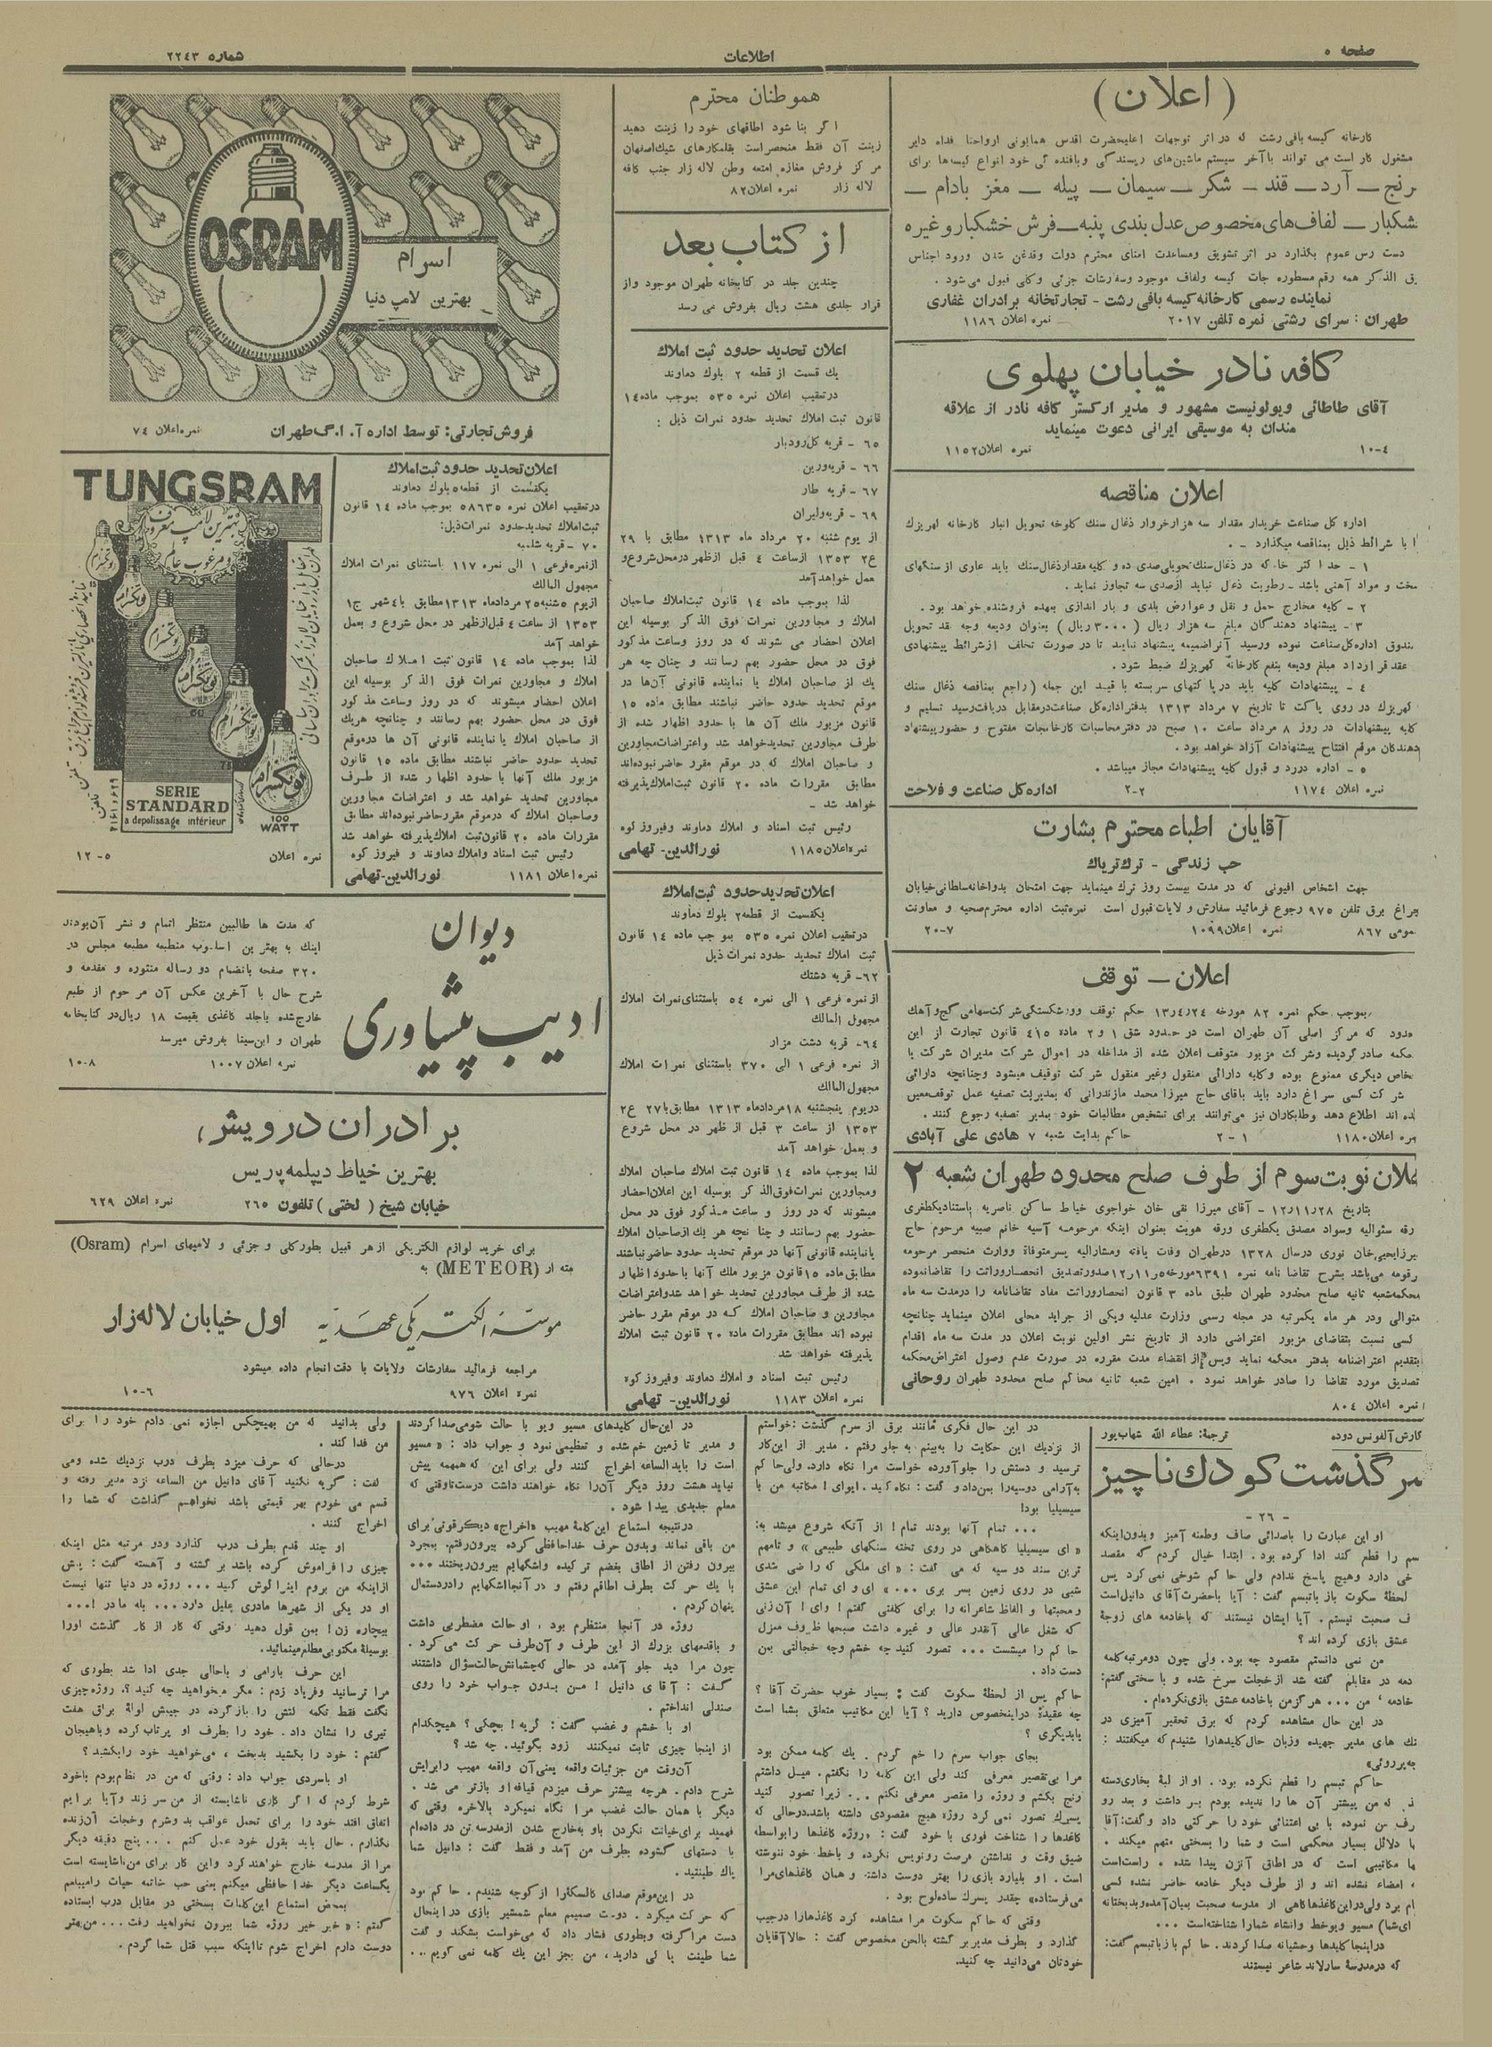 صفحه ٥
اطلاعات
شماره ٢٢٤٣
( اعلان )
كارخانه كيسه بافی رشت كه در اثر توجهات اعليحضرت اقدس همايونی ارواحنا فداه داير
مشغول كار است می تواند با آخر سيستم ماشين‌های ريسندگی و بافنده گی خود انواع كيسه‌ها برای
رنج ـ آرد ـ قند ـ شكر ـ سيمان ـ پيله ـ مغز بادام ـ
شكبار ـ لفاف‌های مخصوص عدل بندی پنبه ـ فرش خشكبار و غيره
دست رس عموم بگذارد در اثر تشويق ومساعدت امنای محترم دولت وقدغن شدن ورود اجناس
ق الذكر همه رقم مسطوره جات كيسه ولفاف موجود وسفارشات جزئی وكلی قبول می‌شود .
نماينده رسمی كارخانه كيسه بافی رشت - تجارتخانه برادران غفاری
طهران : سرای رشتی نمره تلفن ٢٠١٧ نمره اعلان ١١٨٦
كافه نادر خيابان پهلوی
آقای طاطائی ويولونيست مشهور و مدير اركستر كافه نادر از علاقه
مندان به موسيقی ايرانی دعوت مينمايد
١٠-٤ نمره اعلان ١١٥٢
اعلان مناقصه
اداره كل صناعت خريدار مقدار سه هزار خروار ذغال سنك كلوخه تحويل انبار كارخانه كهريزك
ا با شرائط ذيل بمناقصه ميگذارد - .
١ - حد اكثر خاكه در ذغال سنك تحويلی صدی ده و كليه مقدار ذغال سنك بايد عاری از سنگهای
سخت و مواد آهنی باشد - رطوبت ذغال نبايد از صدی سه تجاوز نمايد .
٢ - كليه مخارج حمل و نقل و عوارض بلدی و بار اندازی بعهده فروشنده خواهد بود .
٣ - پيشنهاد دهندگان مبلغ سه هزار ريال (٣٠٠٠ ريال) بعنوان وديعه وجه نقد تحويل
صندوق اداره كل صناعت نموده ورسيد آنرا ضميمه پيشنهاد نمايند تا در صورت تخلف از شرائط پيشنهادی
عقد قرارداد مبلغ وديعه بنفع كارخانه كهريزك ضبط شود .
٤ - پيشنهادات كليه بايد در پاكتهای سربسته با قيد اين جمله (راجع بمناقصه ذغال سنك
كهريزك در روی پاكت تا تاريخ ٧ مرداد ١٣١٣ بدفتر اداره كل صناعت در مقابل دريافت رسيد تسليم و
كليه پيشنهادات در روز ٨ مرداد ساعت ١٠ صبح در دفتر محاسبات كارخانجات مفتوح و حضور پيشنهاد
دهندگان موقع افتتاح پيشنهادات آزاد خواهد بود .
٥ - اداره در رد و قبول كليه پيشنهادات مجاز ميباشد .
نمره اعلان ١١٧٤ ٢-٢ اداره كل صناعت و فلاحت
آقايان اطباء محترم بشارت
حب زندگی - ترك ترياك
جهت اشخاص افيونی كه در مدت بيست روز ترك مينمايد جهت امتحان بدواخانه سلطانی خيابان
چراغ برق تلفن ٩٧٥ رجوع فرمائيد سفارش ولايات قبول است نمره ثبت اداره محترم صحيه و معاونت
مومی ٨٦٧ نمره اعلان ١٠٩٩ ٢٠-٧
اعلان ـ توقف
بموجب حكم نمره ٨٢ مورخه ١٣/٤/٢٤ حكم توقف وورشكستگی شركت سهامی گچ و آهك
حدود كه مركز اصلی آن طهران است در حدود شق ١ و ٢ ماده ٤١٥ قانون تجارت از اين
حكمه صادر گرديده وشركت مزبور متوقف اعلان شده از مداخله در اموال شركت مديران شركت يا
خاص ديگری ممنوع بوده وكليه دارائی منقول وغير منقول شركت توقيف ميشود وچنانچه دارائی
شركت كسی سراغ دارد بايد باقای حاج ميرزا محمد مازندرانی كه بمديريت تصفيه عمل توقف معين
شده اند اطلاع دهد وطلبكاران نيز می‌توانند برای تشخيص مطالبات خود بمدير تصفيه رجوع كنند .
نمره اعلان ١١٨٠ ٢-١ حاكم بدايت شعبه ٧ هادی علی آبادی
علان نوبت سوم از طرف صلح محدود طهران شعبه ٢
بتاريخ ١٢/١١/٢٨ - آقای ميرزا نقی خان خواجوی خياط ساكن ناصريه باستناد يكطغری
رقه سئواليه وسواد مصدق يكطغری ورقه هويت بعنوان اينكه مرحومه آسيه خانم صبيه مرحوم حاج
ميرزا يحيی خان نوری در سال ١٣٢٨ در طهران وفات يافته ومشاراليه پسر متوفاة ووارث منحصر مرحومه
رقومه می‌باشد بشرح تقاضا نامه نمره ٦٣٩١ مورخه ١٢/١١/٥ صدور تصديق انحصار وراثت را تقاضا نموده
محكمه شعبه ثانيه صلح محدود طهران طبق ماده ٣ قانون انحصار وراثت مفاد تقاضانامه را در مدت سه ماه
متوالی ودر هر ماه يكمرتبه در مجله رسمی وزارت عدليه ويكی از جرايد محلی اعلان مينمايد چنانچه
كسی نسبت بتقاضای مزبور اعتراضی دارد از تاريخ نشر اولين نوبت اعلان در مدت سه ماه اقدام
بتقديم اعتراضنامه بدفتر محكمه نمايد وپس از انقضاء مدت مقرره در صورت عدم وصول اعتراض محكمه
تصديق مورد تقاضا را صادر خواهد نمود . امين شعبه ثانيه محاكم صلح محدود طهران روحانی
نمره اعلان ٨٠٤
هموطنان محترم
اگر بنا شود اطاقهای خود را زينت دهيد
زينت آن فقط منحصر است بقلمكارهای شيك اصفهان
مركز فروش مغازه امتعه وطن لاله زار جنب كافه
لاله زار نمره اعلان ٨٢
از كتاب بعد
چندين جلد در كتابخانه طهران موجود و از
قرار جلدی هشت ريال بفروش می رسد
اعلان تحديد حدود ثبت املاك
يك قسمت از قطعه ٢ بلوك دماوند
در تعقيب اعلان نمره ٥٣٥ بموجب ماده ١٤
قانون ثبت املاك تحديد حدود نمرات ذيل :
٦٥ - قريه كل رودبار
٦٦ - قريه ورين
٦٧ - قريه طار
٦٩ - قريه وايران
از يوم شنبه ٢٠ مرداد ماه ١٣١٣ مطابق با ٢٩
ع٢ ١٣٥٣ از ساعت ٤ قبل از ظهر در محل شروع و
عمل خواهد آمد
لذا بموجب ماده ١٤ قانون ثبت املاك صاحبان
املاك و مجاورين نمرات فوق الذكر بوسيله اين
اعلان احضار می شوند كه در روز وساعت مذكور
فوق در محل حضور بهم رسانند و چنان چه هر
يك از صاحبان املاك يا نماينده قانونی آن‌ها در
موقع تحديد حدود حاضر نباشند مطابق ماده ١٥
قانون مزبور ملك آن ها با حدود اظهار شده از
طرف مجاورين تحديد خواهد شد واعتراضات مجاورين
و صاحبان املاك كه در موقع مقرر حاضر نبوده‌اند
مطابق مقررات ماده ٢٠ قانون ثبت املاك پذيرفته
خواهد شد -
رئيس ثبت اسناد و املاك دماوند وفيروز كوه
نمره اعلان ١١٨٥ نورالدين - تهامی
اعلان تحديد حدود ثبت املاك
يكقسمت از قطعه ٢ بلوك دماوند
در تعقيب اعلان نمره ٥٣٥ بموجب ماده ١٤ قانون
ثبت املاك تحديد حدود نمرات ذيل
٦٢ - قريه دشتك
از نمره فرعی ١ الی نمره ٥٤ باستثنای نمرات املاك
مجهول المالك
٦٤ - قريه دشت مزار
از نمره فرعی ١ الی ٣٧٠ باستثنای نمرات املاك
مجهول المالك
در يوم پنجشنبه ١٨ مرداد ماه ١٣١٣ مطابق با ٢٧ ع٢
١٣٥٣ از ساعت ٣ قبل از ظهر در محل شروع
و بعمل خواهد آمد
لذا بموجب ماده ١٤ قانون ثبت املاك صاحبان املاك
ومجاورين نمرات فوق الذكر بوسيله اين اعلان احضار
ميشوند كه در روز و ساعت مذكور فوق در محل
حضور بهم رسانند و چنانچه هر يك از صاحبان املاك
يا نماينده قانونی آنها در موقع تحديد حدود حاضر نباشند
مطابق ماده ١٥ قانون مزبور ملك آنها با حدود اظهار
شده از طرف مجاورين تحديد خواهد شد واعتراضات
مجاورين و صاحبان املاك كه در موقع مقرر حاضر
نبوده اند مطابق مقررات ماده ٢٠ قانون ثبت املاك
پذيرفته خواهد شد
رئيس ثبت اسناد و املاك دماوند وفيروز كوه
نمره اعلان ١١٨٣ نورالدين - تهامی
OSRAM
اسرام
بهترين لامپ دنيا
فروش تجارتی: توسط اداره آ. ا. گ طهران نمره اعلان ٧٤
اعلان تحديد حدود ثبت املاك
يكقسمت از قطعه ٥ بلوك دماوند
در تعقيب اعلان نمره ٥٨٦٣٥ بموجب ماده ١٤ قانون
ثبت املاك تحديد حدود نمرات ذيل:
٧٠ - قريه شلمبه
از نمره فرعی ١ الی نمره ١١٧ باستثنای نمرات املاك
مجهول المالك
از يوم ٥ شنبه ٢٥ مرداد ماه ١٣١٣ مطابق با ٤ شهر ج١
١٣٥٣ از ساعت ٤ قبل از ظهر در محل شروع و بعمل
خواهد آمد
لذا بموجب ماده ١٤ قانون ثبت املاك صاحبان
املاك و مجاورين نمرات فوق الذكر بوسيله اين
اعلان احضار ميشوند كه در روز وساعت مذكور
فوق در محل حضور بهم رسانند و چنانچه هريك
از صاحبان املاك يا نماينده قانونی آن ها در موقع
تحديد حدود حاضر نباشند مطابق ماده ١٥ قانون
مزبور ملك آنها با حدود اظهار شده از طرف
مجاورين تحديد خواهد شد و اعتراضات مجاورين
وصاحبان املاك كه در موقع مقرر حاضر نبوده‌اند مطابق
مقررات ماده ٢٠ قانون ثبت املاك پذيرفته خواهد شد
رئيس ثبت اسناد واملاك دماوند و فيروز كوه
نمره اعلان ١١٨١ نورالدين - تهامی
TUNGSRAM
بهترين لامپ معروف
و مرغوب عالم
تونگسرام
60
75
100
WATT
SERIE
STANDARD
a depolissage intérieur
نمره اعلان ١٢-٥
ديوان
اديب پيشاوری
كه مدت ها طالبين منتظر اتمام و نشر آن بودند
اينك به بهترين اسلوب منطبعه مطبعه مجلس در
٣٢٠ صفحه بانضمام دو رساله منثوره و مقدمه و
شرح حال با آخرين عكس آن مرحوم از طبع
خارج شده با جلد كاغذی بقيمت ١٨ ريال در كتابخانه
طهران و ابن سينا بفروش ميرسد
نمره اعلان ١٠٠٧ ١٠-٨
برادران درويش ،
بهترين خياط ديپلمه پاريس
خيابان شيخ ( لختی ) تلفون ٢٦٥ نمره اعلان ٦٢٩
برای خريد لوازم الكتريكی از هر قبيل بطور كلی و جزئی و لامپهای اسرام (Osram)
مته ار (METEOR) به
موسسه الكتريكی عهديه اول خيابان لاله زار
مراجعه فرمائيد سفارشات ولايات با دقت انجام داده ميشود
نمره اعلان ٩٧٦ ١٠-٦
نگارش آلفونس دوده ترجمهٔ: عطاء الله شهاب پور
سرگذشت كودك ناچيز
- ٢٦ -
او اين عبارت را باصدائی صاف وطعنه آميز وبدون اينكه
سم را قطع كند ادا كرده بود. ابتدا خيال كردم كه مقصد
خی دارد وهيچ پاسخ ندادم ولی حاكم شوخی نمی كرد پس
لحظهٔ سكوت باز باتبسم گفت : آيا باحضرت آقای دانيل است
ف صحبت نيستم . آيا ايشان نيستند كه باخادمه های زوجهٔ
عشق بازی كرده اند ؟
من نمی دانستم مقصود چه بود . ولی چون دو مرتبه كلمه
دمه در مقابلم گفته شد از خجلت سرخ شده و با سختی گفتم:
خادمه ! من ... هرگز من باخادمه عشق بازی نكرده‌ام .
در اين حال مشاهده كردم كه برق تحقير آميزی در
نك های مدير جهيده وزبان حال كليدها را شنيدم كه ميگفتند :
چه پرروئی»
حاكم تبسم را قطع نكرده بود . او از لبهٔ بخاری دسته
كه من پيشتر آن ها را نديده بودم بر داشت و بعد رو
رف من نموده با بی اعتنائی خود را حركتی داد و گفت: آقا
با دلائل بسيار محكمی است و شما را بسختی متهم ميكند .
ها مكاتيبی است كه در اطاق آنزن پيدا شده . راست است
، امضاء نشده اند و از طرف ديگر خادمه حاضر نشده كسی
ام برد ولی در اين كاغذها گاهی از مدرسه صحبت بميان آمده وبدبختانه
ای شما) مسيو ويو خط وانشاء شما را شناخته است ...
در اينجا كليدها وحشيانه صدا كردند . حاكم باز باتبسم گفت:
كه در مدرسهٔ سارلاند شاعر نيستند
در اين حال فكری مانند برق از سرم گذشت : خواستم
از نزديك اين حكايت را به‌بينم به جلو رفتم . مدير از اين كار
ترسيد و دستش را جلو آورده خواست مرا نگاه دارد. ولی حاكم
به آرامی دوسيه را بمن داد و گفت : نگاه كنيد . ايوای ! مكاتبه من با
سيسيليا بود!
... تمام آنها بودند تمام ! از آنكه شروع ميشد به:
« ای سيسيليا گاهگاهی در روی تخته سنگهای طبيعی » و تا مهم
ترين سند دوسيه كه می گفت : « ای ملكی كه راضی شدی
شبی در روی زمين بسر بری ... » ای وای تمام اين عشق
ومحبتها و الفاظ شاعرانه را برای كلفتی گفتم ! وای ! آن زنی
كه شغل عالی آنقدر عالی و غيره داشت صبحها ظروف منزل
حاكم را ميشست ... تصور كنيد چه خشم وچه خجالتی بمن
دست داد .
حاكم پس از لحظهٔ سكوت گفت : بسيار خوب حضرت آقا ؟
چه عقيدهٔ در اينخصوص داريد ؟ آيا اين مكاتيب متعلق بشما است
يا بديگری ؟
بجای جواب سرم را خم كردم . يك كلمه ممكن بود
مرا بی‌تقصير معرفی كند ولی اين كلمه را نگفتم . ميل داشتم
رنج بكشم و روژه را مقصر معرفی نكنم ... زيرا تصور كنيد
پسرك تصور نمی كرد روژه هيچ مقصودی داشته باشد. در حالی كه
كاغذها را شناخت فوری با خود گفت : «روژه كاغذها را بواسطه
ضيق وقت و نداشتن فرصت رونويس نكرده و باخط خود ننوشته
است . او بليارد بازی را بهتر دوست داشته و همان كاغذهای مرا
می فرستاده» چقدر پسرك ساده‌لوح بود .
وقتی كه حاكم سكوت مرا مشاهده كرد كاغذها را در جيب
گذارد و بطرف مدير بر گشته باالحن مخصوص گفت : حالا آقايان
خودتان می‌دانيد چه كنيد.
در اين حال كليدهای مسيو ويو با حالت شومی صدا كردند
و مدير تا زمين خم شده و تعظيمی نمود و جواب داد : « مسيو
است را بايد الساعه اخراج كنند ولی برای اين كه همهمه پيش
نيايد هشت روز ديگر آن را نگاه خواهند داشت درست تا وقتی كه
معلم جديدی پيدا شود .
در نتيجه استماع اين كلمهٔ مهيب «اخراج» ديگر قوتی برای
من باقی نماند وبدون حرف خدا حافظی كرده بيرون رفتم. بمجرد
بيرون رفتن از اطاق بغضم تركيده واشگهايم بيرون ريختند ...
با يك حركت بطرف اطاقم رفتم و در آنجا اشگهايم را در دستمال
پنهان كردم .
روژه در آنجا منتظرم بود . او حالت مضطربی داشت
و باقدمهای بزرگ از اين طرف و آن طرف حركت می كرد .
چون مرا ديد جلو آمده در حالی كه چشمانش حالت سؤال داشتند
گفت : آقای دانيل ! من بدون جواب خود را روی
صندلی انداختم .
او با خشم و غضب گفت : گريه ! بچگی ؟ هيچكدام
از اينجا چيزی ثابت نميكنند زود بگوئيد . چه شد ؟
آن وقت من جزئيات واقعه يعنی آن واقعه مهيب را برايش
شرح دادم . هرچه بيشتر حرف ميزدم قيافهٔ او بازتر می شد .
ديگر با همان حالت غضب مرا نگاه نميكرد بالاخره وقتی كه
فهميد برای خيانت نكردن باو بخارج شدن از مدرسه تن در داده‌ام
با دستهای گشوده بطرف من آمد و فقط گفت : دانيل شما
پاك طينتيد .
در اين موقع صدای كالسكه‌را از كوچه شنيدم . حاكم بود
كه حركت ميكرد . دوست صميمم معلم شمشير بازی در اينحال
دست مرا گرفته وبطوری فشار داد كه می‌خواست بشكند و گفت
شما طينت پاكی داريد ، من بجز اين يك كلمه نمی گويم ...
ولی بدانيد كه من بهيچكس اجازه نمی دادم خود را برای
من فدا كند .
در حالی كه حرف ميزد بطرف درب نزديك شده ومی
گفت : گريه نكنيد آقای دانيل من الساعه نزد مدير رفته و
قسم می خورم بهر قيمتی باشد نخواهم گذاشت كه شما را
اخراج كنند .
او چند قدم بطرف درب گذارد ودو مرتبه مثل اينكه
چيزی را فراموش كرده باشد بر گشته و آهسته گفت : پيش
از اينكه من بروم اينرا گوش كنيد ... روژه در دنيا تنها نيست
او در يكی از شهرها مادری عليل دارد ... بله مادر ! ...
بيچاره زن ! بمن قول دهيد وقتی كه كار از كار گذشت اورا
بوسيلهٔ مكتوبی مطلع مينمائيد.
اين حرف بارامی و باحالی جدی ادا شد بطوری كه
مرا ترسانيد وفرياد زدم : مگر ميخواهيد چه كنيد ؟. روژه چيزی
نگفت فقط تكمه لتش را باز كرده در جيبش لولهٔ براق هفت
تيری را نشان داد. خود را بطرف او پرتاب كرده وباهيجان
گفتم : خود را بكشيد بدبخت ، می‌خواهيد خود را بكشيد ؟
او باسردی جواب داد : وقتی كه من در نظام بودم باخود
شرط كردم كه اگر كاری ناشايسته از من سر زند و آيا برايم
اتفاق افتد خود را برای تحمل عواقب بد وشرم وخجلت آن زنده
نگذارم . حال بايد بقول خود عمل كنم ... پنج دقيقه ديگر
مرا از مدرسه خارج خواهند كرد واين كار برای من ناشايسته است
يكساعت ديگر خدا حافظی ميكنم يعنی حب خاتمه حيات را ميبلعم
بمحض استماع اين كلمات بسختی در مقابل درب ايستاده
گفتم : « خير خير روژه شما بيرون نخواهيد رفت ... من بهتر
دوست دارم اخراج شوم تا اينكه سبب قتل شما گردم .